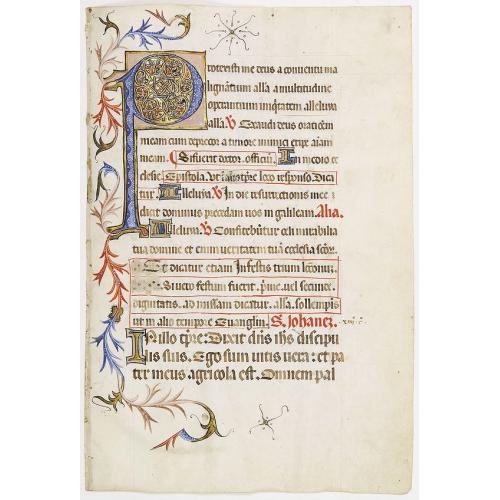 Protexisti me deus a conventu ma
lignātium alla a multitudine
operantium iniqtatem alleluia
alla. V Exaudi deus orationē
meam cum deprecor a timore inimici eripe aīam
meam. Si fuerit doctor. officiū. In medio ec
clesie. Epistola. Ut leco responso Dica
tur. Alleluia. V In die resurrectionis mee
dicit dominus precedam vos in galileam. Alia.
Alleluia. V Confitebūtur celi mirabilia
tua domine et enim veritatem tuā ecclesia scōr.
Et dicatur etiam In festis trium lectionū.
Si vero festum fuerit. pme. vel secunde
dignitatis. ad missam dicatur. alla. sollempīs
ut in alio tempore Evanglin. S. Johanez.
In illo tpre: Dixit dns ihs discipu
lis suis. Ego sum vitis vera: et pa
ter meus agricola est. Omnem pal